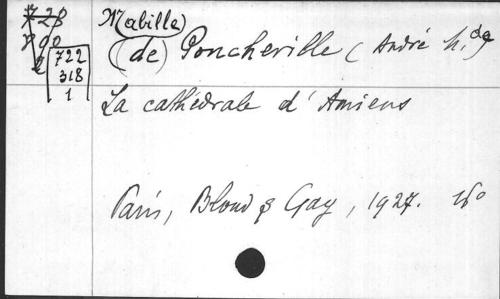 728
722
318
1
Mabille
(de) Poncheville (André M. de)
La cathédrale d'Amiens
Paris, Bloud & Gay, 1927. 16°